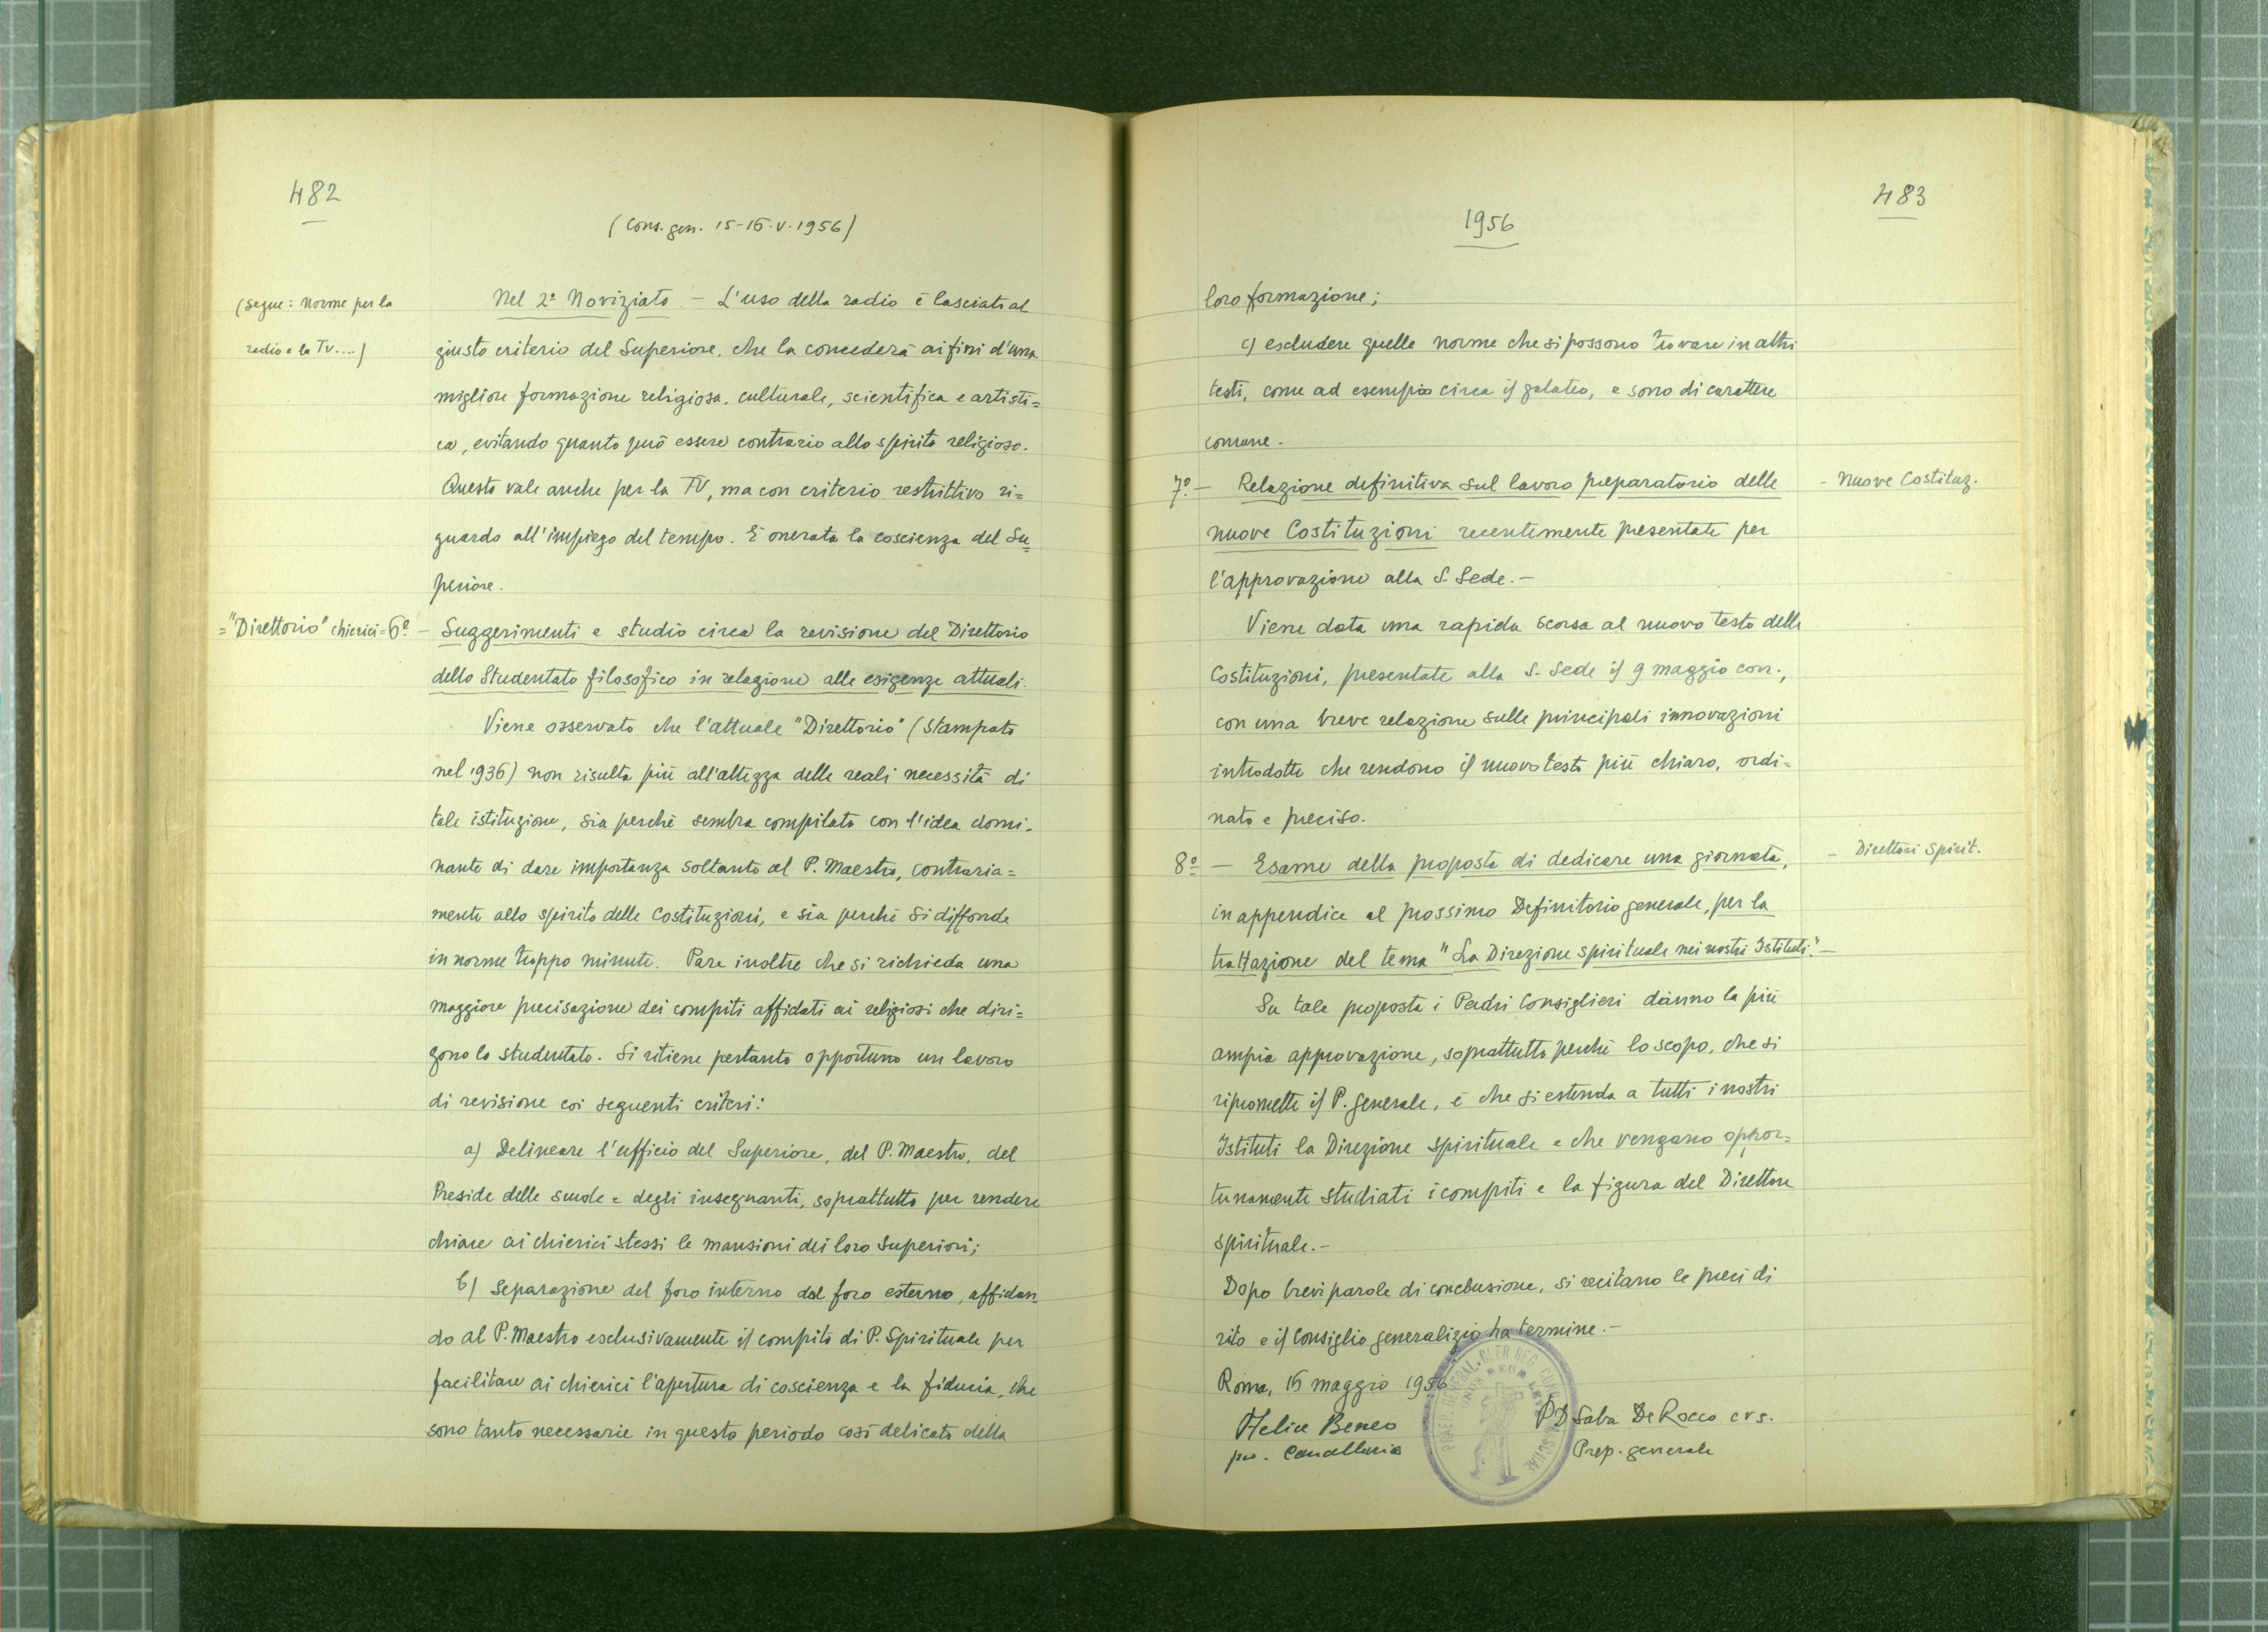 482
(Cons. gen. 15-16.V.1956)
(segue: norme per la
radio e la TV....)
Nel 2º Noviziato - L'uso della radio è lasciato al
giusto criterio del Superiore, che la concederà ai fini d'una
migliore formazione religiosa, culturale, scientifica e artisti=
ca, evitando quanto può essere contrario allo spirito religioso.
Questo vale anche per la TV, ma con criterio restrittivo ri=
guardo all'impiego del tempo. È onerata la coscienza del Su=
periore.
="Direttorio" chierici= 6º - Suggerimenti e studio circa la revisione del Direttorio
dello Studentato filosofico in relazione alle esigenze attuali.
Viene osservato che l'attuale "Direttorio" (stampato
nel 1936) non risulta più all'altezza delle reali necessità di
tale istituzione, sia perchè sembra compilato con l'idea domi-
nante di dare importanza soltanto al P. Maestro, contraria=
mente allo spirito delle Costituzioni, e sia perchè si diffonde
in norme troppo minute. Pare inoltre che si richieda una
maggiore precisazione dei compiti affidati ai religiosi che diri=
gono lo studentato. Si ritiene pertanto opportuno un lavoro
di revisione coi seguenti criteri:
a) Delineare l'ufficio del Superiore, del P. Maestro, del
Preside delle scuole e degli insegnanti, soprattutto per rendere
chiare ai chierici stessi le mansioni dei loro Superiori;
b) Separazione del foro interno dal foro esterno, affidan=
do al P. Maestro esclusivamente il compito di P. Spirituale per
facilitare ai chierici l'apertura di coscienza e la fiducia, che
sono tanto necessarie in questo periodo così delicato della
483
1956
loro formazione;
c) escludere quelle norme che si possono trovare in altri
testi, come ad esempio circa il galateo, e sono di carattere
comune.
7º - Relazione definitiva sul lavoro preparatorio delle
- Nuove Costituz.
nuove Costituzioni recentemente presentate per
l'approvazione alla S. Sede.-
Viene data una rapida scorsa al nuovo testo delle
Costituzioni, presentate alla S. Sede il 9 maggio corr.,
con una breve relazione sulle principali innovazioni
introdotte che rendono il nuovo testo più chiaro, ordi=
nato e preciso.
8º - Esame della proposta di dedicare una giornata,
- Direttori Spirit.
in appendice al prossimo Definitorio generale, per la
trattazione del tema "La Direzione spirituale nei nostri Istituti".-
Su tale proposta i Padri Consiglieri dànno la più
ampia approvazione, soprattutto perchè lo scopo, che si
ripromette il P. Generale, è che si estenda a tutti i nostri
Istituti la Direzione spirituale e che vengano oppor=
tunamente studiati i compiti e la figura del Direttore
spirituale.-
Dopo brevi parole di conclusione, si recitano le preci di
rito e il Consiglio generalizio ha termine.-
Roma, 16 maggio 1956
P D Saba De Rocco crs.
Felice Beneo
Prep. generale
Cancelleria
PRAEP. GENERAL. CLER REG.